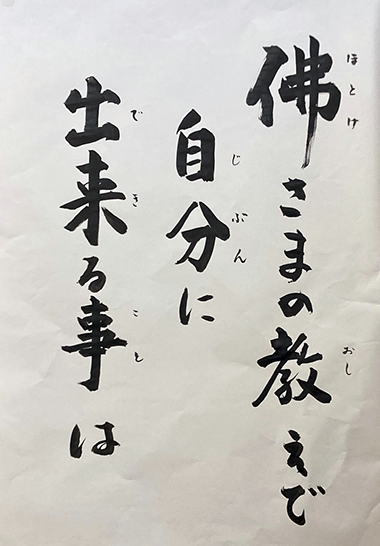 佛さまの教えで
ほとけ
おし
自分に
じぶん
出来る事は
でき
こと